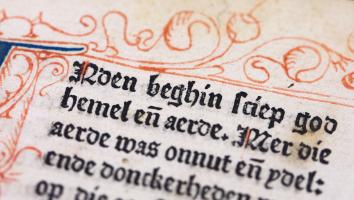 INden beghin sciep god
hemel en̄ aerde. Mer die
aerde was onnut en̄ ydel:
ende donckerheden
op die